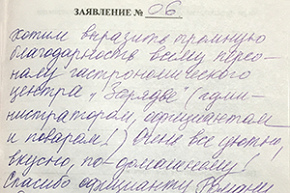 ЗАЯВЛЕНИЕ № 06
хотим выразить громную
благодарность всему персо-
налу гастрономического
центра „Зарядье" (адми-
нистраторам, официантам
и поварам!) Очень все уютно,
вкусно, по-домашнему!
Спасибо официанту